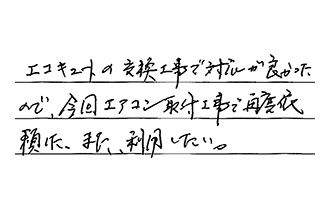 エコキュートの交換工事で対応が良かった
ので、今回エアコン取付工事で再度依
頼した。また、利用したい。